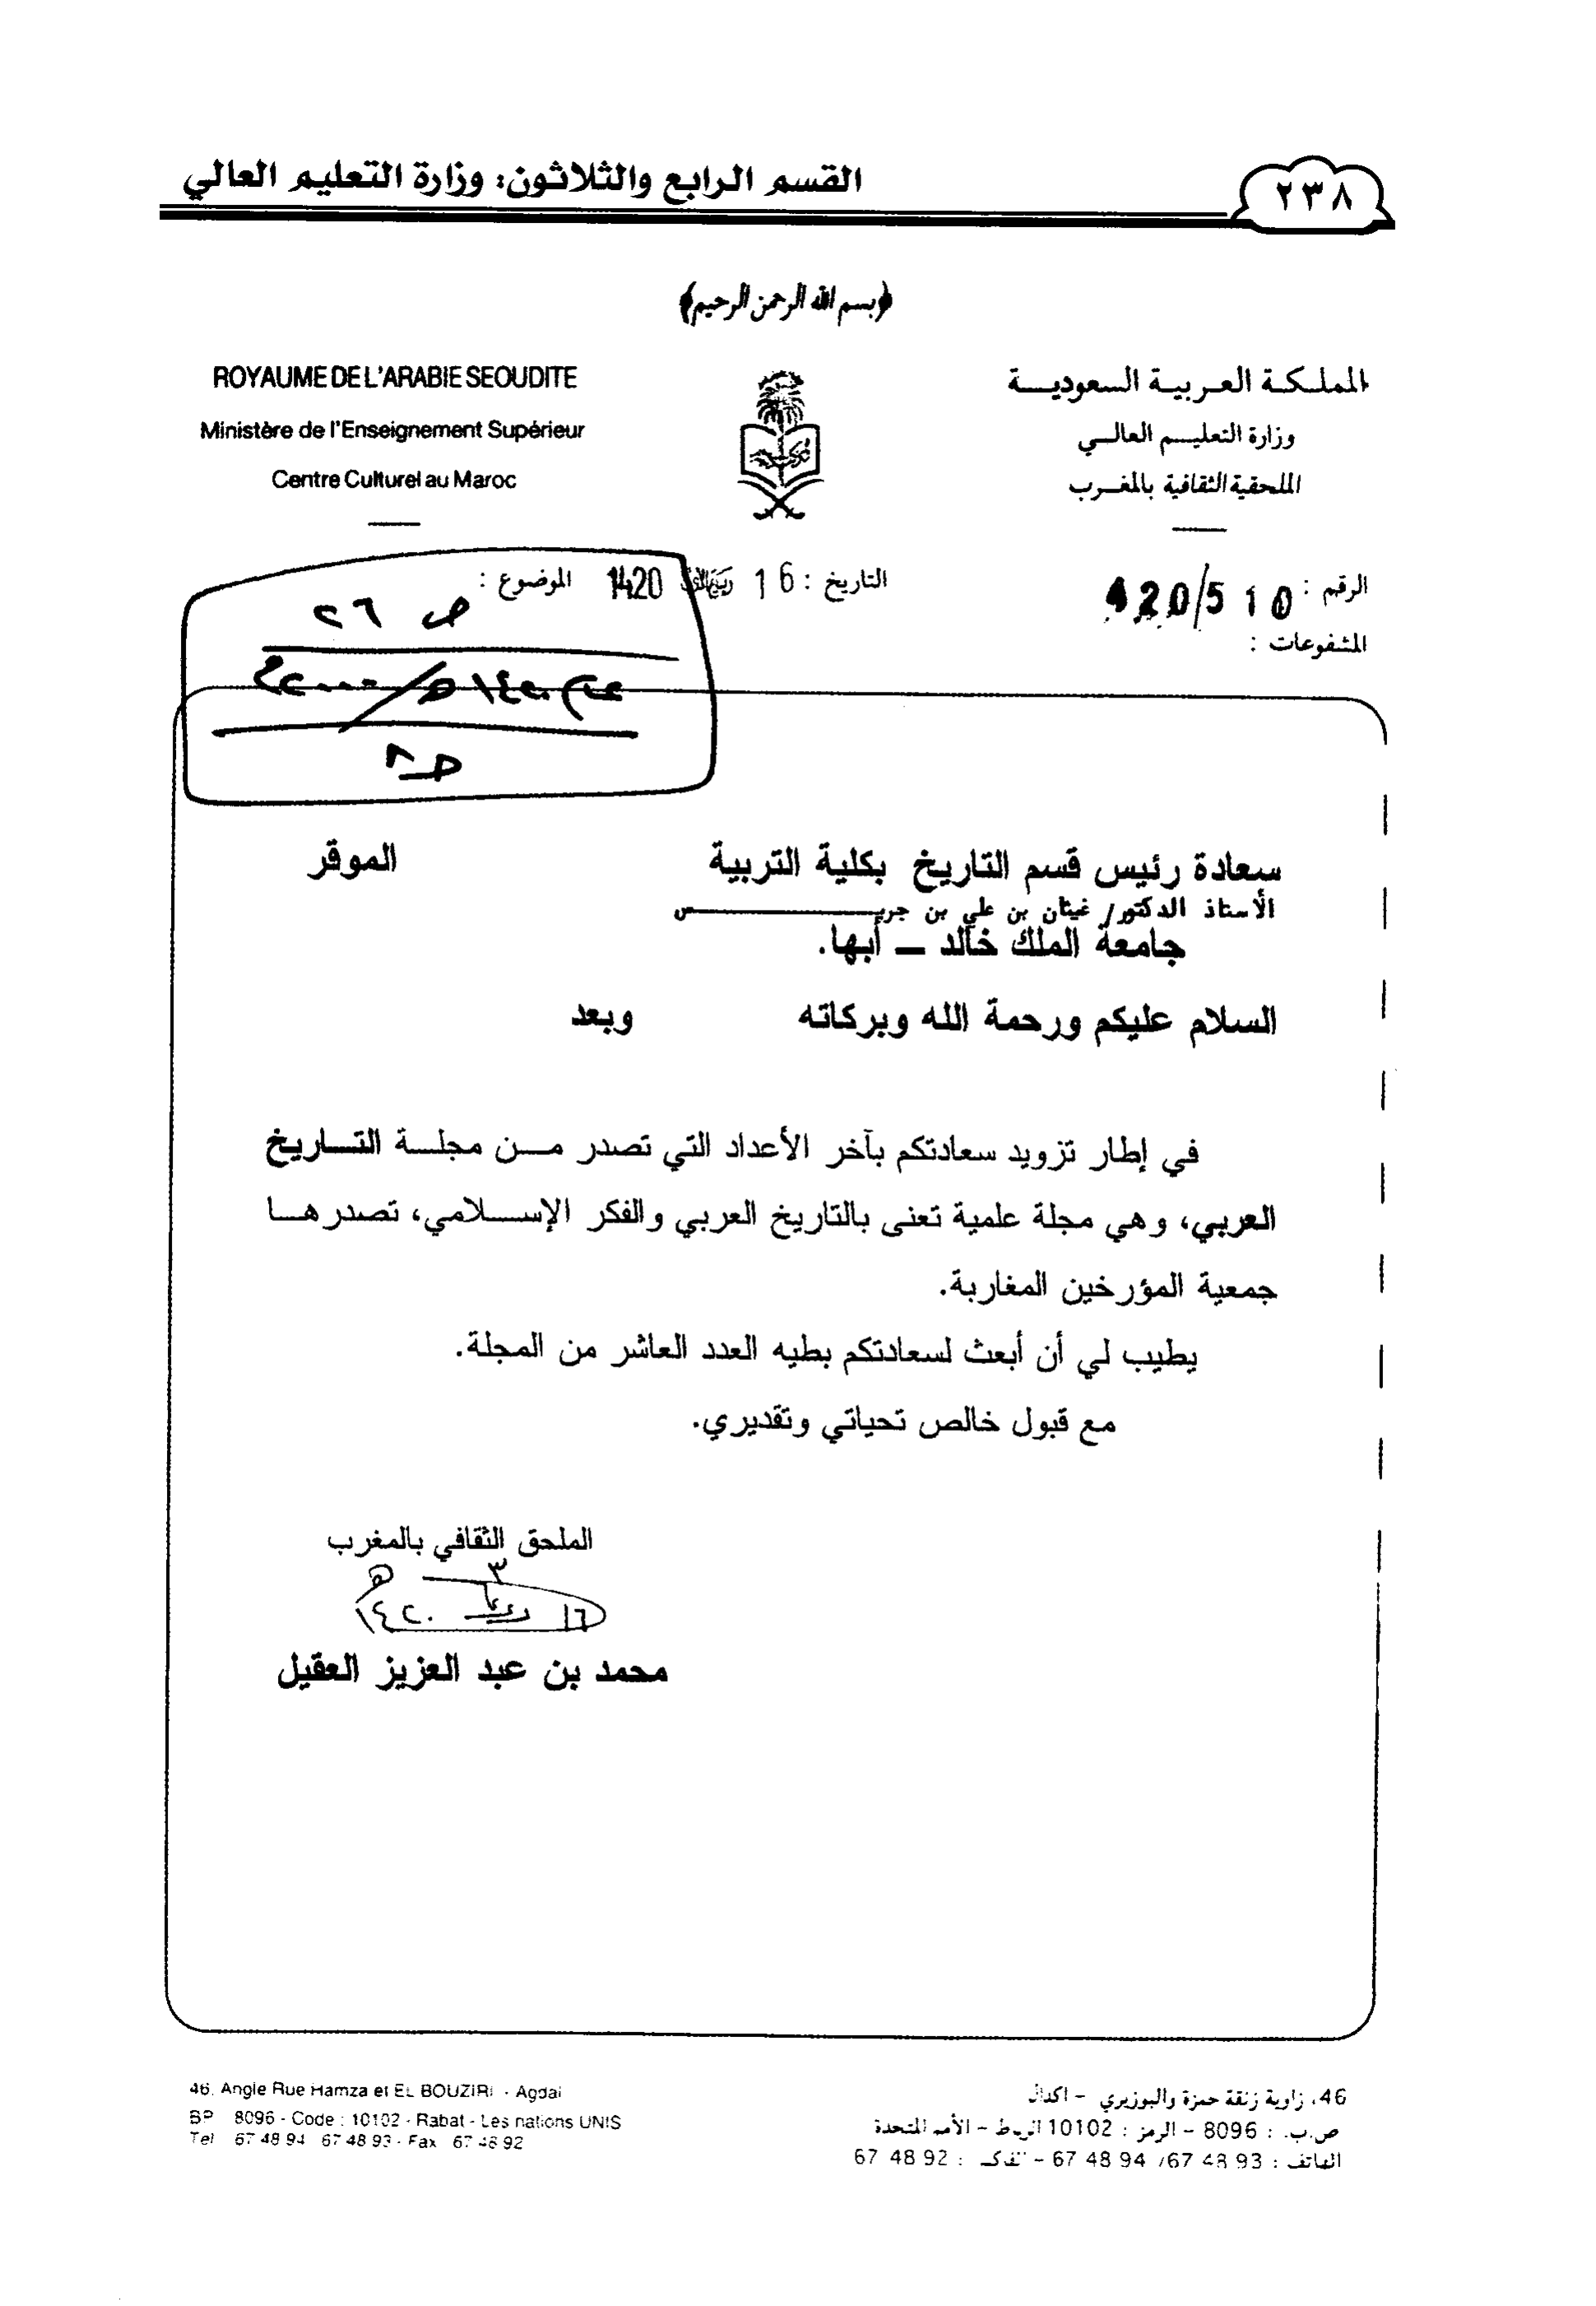 ٢٣٨
القسم الرابع والثلاثون: وزارة التعليم العالي
﴿بسم الله الرحمن الرحيم﴾
المملكة العربية السعودية
وزارة التعليم العالي
الملحقية الثقافية بالمغرب
ROYAUME DE L'ARABIE SEOUDITE
Ministère de l'Enseignement Supérieur
Centre Culturel au Maroc
الرقم : 420/510
التاريخ : 16 ربيع الأول 1420
الموضوع :
المشفوعات :
ص ٢٦
١٤٢٠هـ/٢٠٠٠م
سعادة رئيس قسم التاريخ بكلية التربية الموقر
الأستاذ الدكتور/ غيثان بن علي بن جريس
جامعة الملك خالد – أبها.
السلام عليكم ورحمة الله وبركاته وبعد
في إطار تزويد سعادتكم بآخر الأعداد التي تصدر من مجلة التاريخ
العربي، وهي مجلة علمية تعنى بالتاريخ العربي والفكر الإسلامي، تصدرها
جمعية المؤرخين المغاربة.
يطيب لي أن أبعث لسعادتكم بطيه العدد العاشر من المجلة.
مع قبول خالص تحياتي وتقديري.
الملحق الثقافي بالمغرب
محمد بن عبد العزيز العقيل
46، زاوية زنقة حمزة والبوزيري – اكدال
ص.ب. : 8096 – الرمز : 10102 الرباط – الأمم المتحدة
الهاتف : 67 48 93 / 67 48 94 – الفاكس : 67 48 92
46, Angle Rue Hamza et EL BOUZIRI - Agdal
BP 8096 - Code : 10102 - Rabat - Les nations UNIS
Tel 67 48 94 67 48 93 - Fax 67 48 92